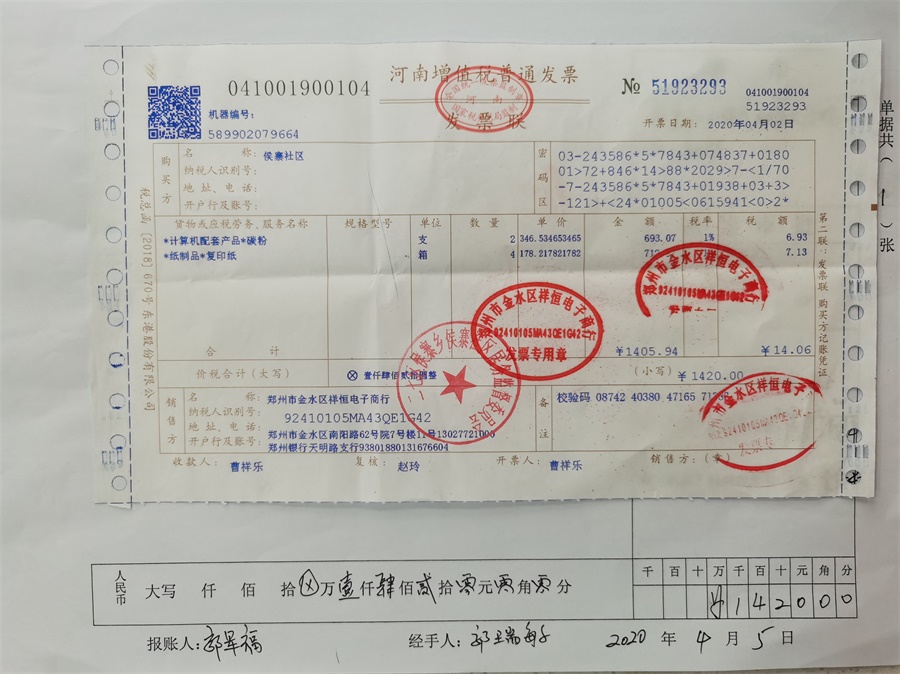 河南增值税普通发票
041001900104
№ 51923293
041001900104
51923293
机器编号:
589902079664
发票联
开票日期: 2020年04月02日
购买方
名 称: 侯寨社区
纳税人识别号:
地址、电话:
开户行及账号:
密码区
03-243586*5*7843+074837+0180
01>72+846*14>88*2029>7-<1/70
-7-243586*5*7843+01938+03+3>
-121>+<24*01005<0615941<0>2*
货物或应税劳务、服务名称 规格型号 单位 数量 单价 金额 税率 税额
*计算机配套产品*碳粉 支 2 346.534653465 693.07 1% 6.93
*纸制品*复印纸 箱 4 178.217821782 7.13
合 计 ¥1405.94 ¥14.06
价税合计(大写) ⊗ 壹仟肆佰贰拾圆整 (小写) ¥1420.00
销售方
名 称: 郑州市金水区祥恒电子商行
纳税人识别号: 92410105MA43QE1G42
地址、电话: 郑州市金水区南阳路62号院7号楼11号13027721006
开户行及账号: 郑州银行天明路支行93801880131676604
备注
校验码 08742 40380 47165
收款人: 曹祥乐 复核: 赵玲 开票人: 曹祥乐 销售方:(章)
税总函〔2018〕670号
第二联:发票联 购买方记账凭证
郑州市金水区祥恒电子商行
92410105MA43QE1G42
发票专用章
郑州市金水区祥恒电子商行
92410105MA43QE1G42
郑州市金水区祥恒电子
单据共(1)张
人民币 大写 仟 佰 拾 ⊗万壹仟肆佰贰拾零元零角零分
千 百 十 万 千 百 十 元 角 分
¥ 1 4 2 0 0 0
报账人: 经手人: 2020 年 4 月 5 日